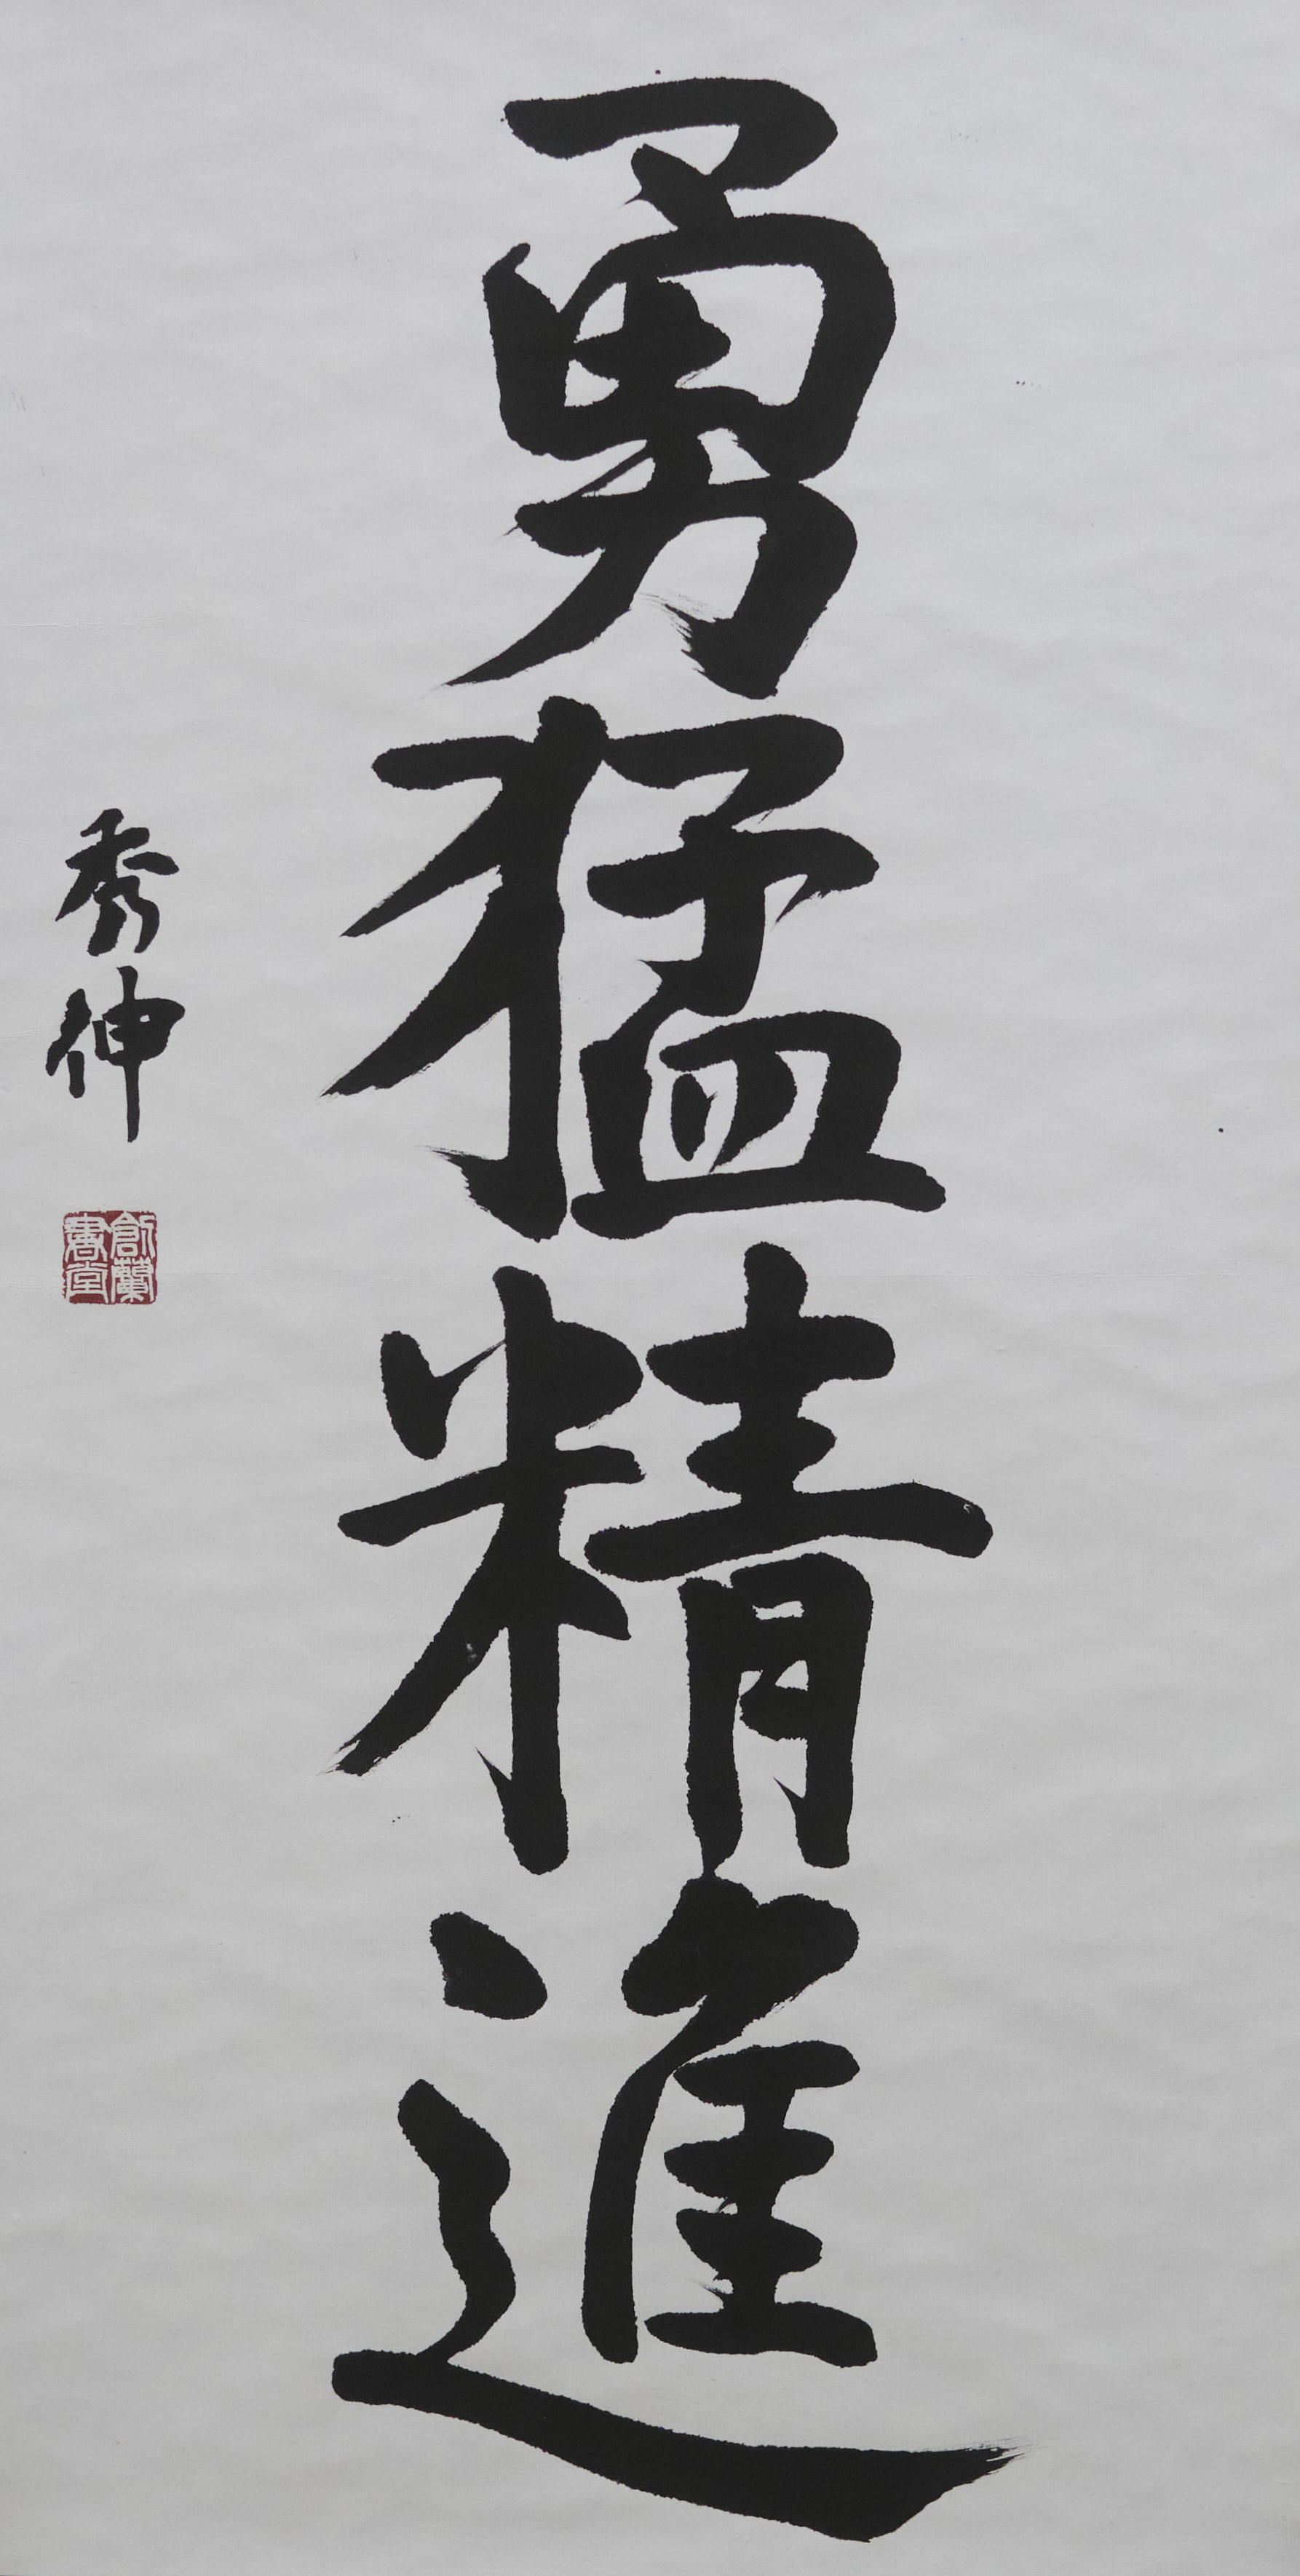 勇猛精進
秀伸
創蘭
書堂